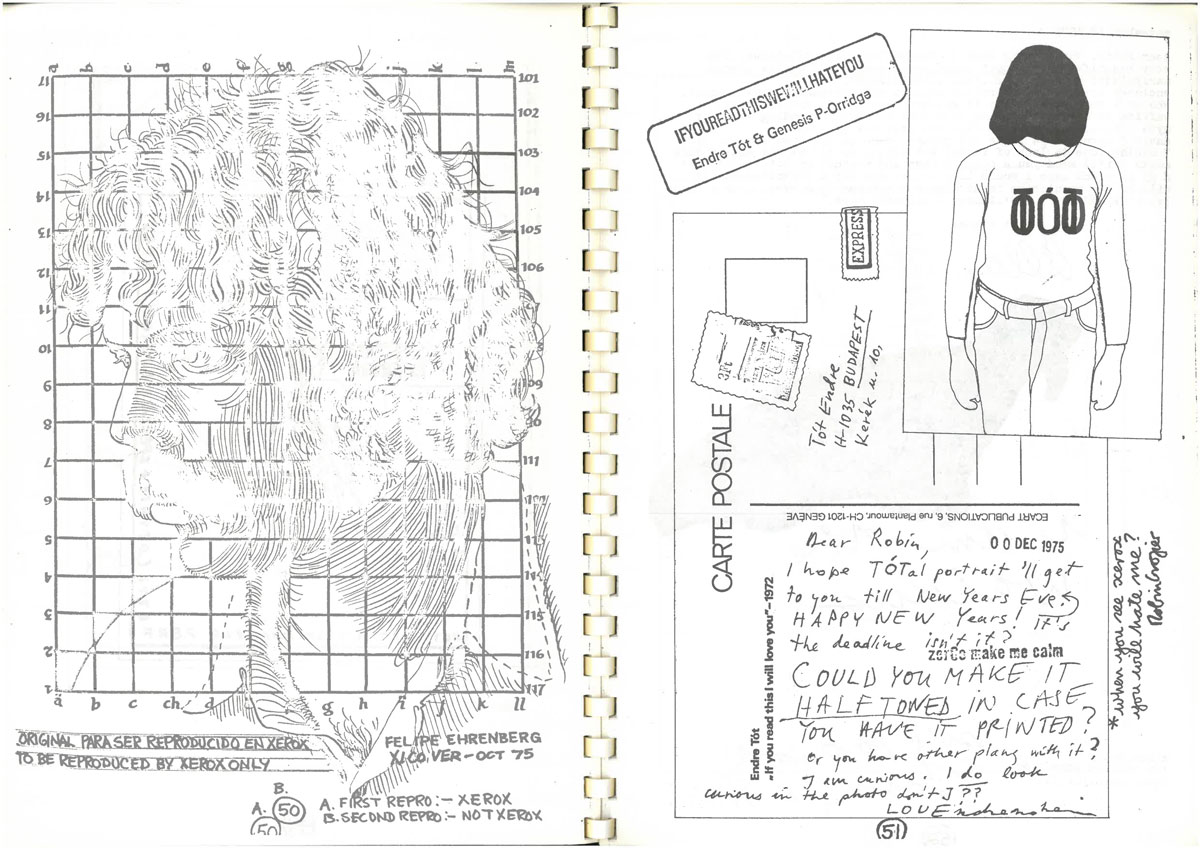 a b c d e f g h i j k l m
17 101
16 102
15 103
14 104
13 105
12 106
11
10
9 109
8
7 111
6
5
4
3 115
2 116
1 117
a b c ch d f g h i j k l ll
ORIGINAL PARA SER REPRODUCIDO EN XEROX
TO BE REPRODUCED BY XEROX ONLY
FELIPE EHRENBERG
XICO, VER - OCT 75
B.
A. 50
50
A. FIRST REPRO:- XEROX
B. SECOND REPRO:- NOT XEROX
IFYOUREADTHISWEWILLHATEYOU
Endre Tót & Genesis P-Orridge
TÓT
EXPRESS
3Ft
Tót Endre
H-1035 BUDAPEST
Kerék u. 10,
CARTE POSTALE
ECART PUBLICATIONS, 6, rue Plantamour, CH-1201 GENÈVE
Dear Robin,
00 DEC 1975
I hope TÓTal portrait 'll get
to you till New Years Eve.
HAPPY NEW Years! It's
the deadline isn't it?
zer0s make me calm
COULD YOU MAKE IT
HALFTONED IN CASE
YOU HAVE IT PRINTED?
Or you have other plans with it?
I am curious. I do look
curious in the photo don't I??
LOVE
Endre Tót
„If you read this I will love you"–1972
*when you see xerox
you will hate me?
Robin Crozier
51